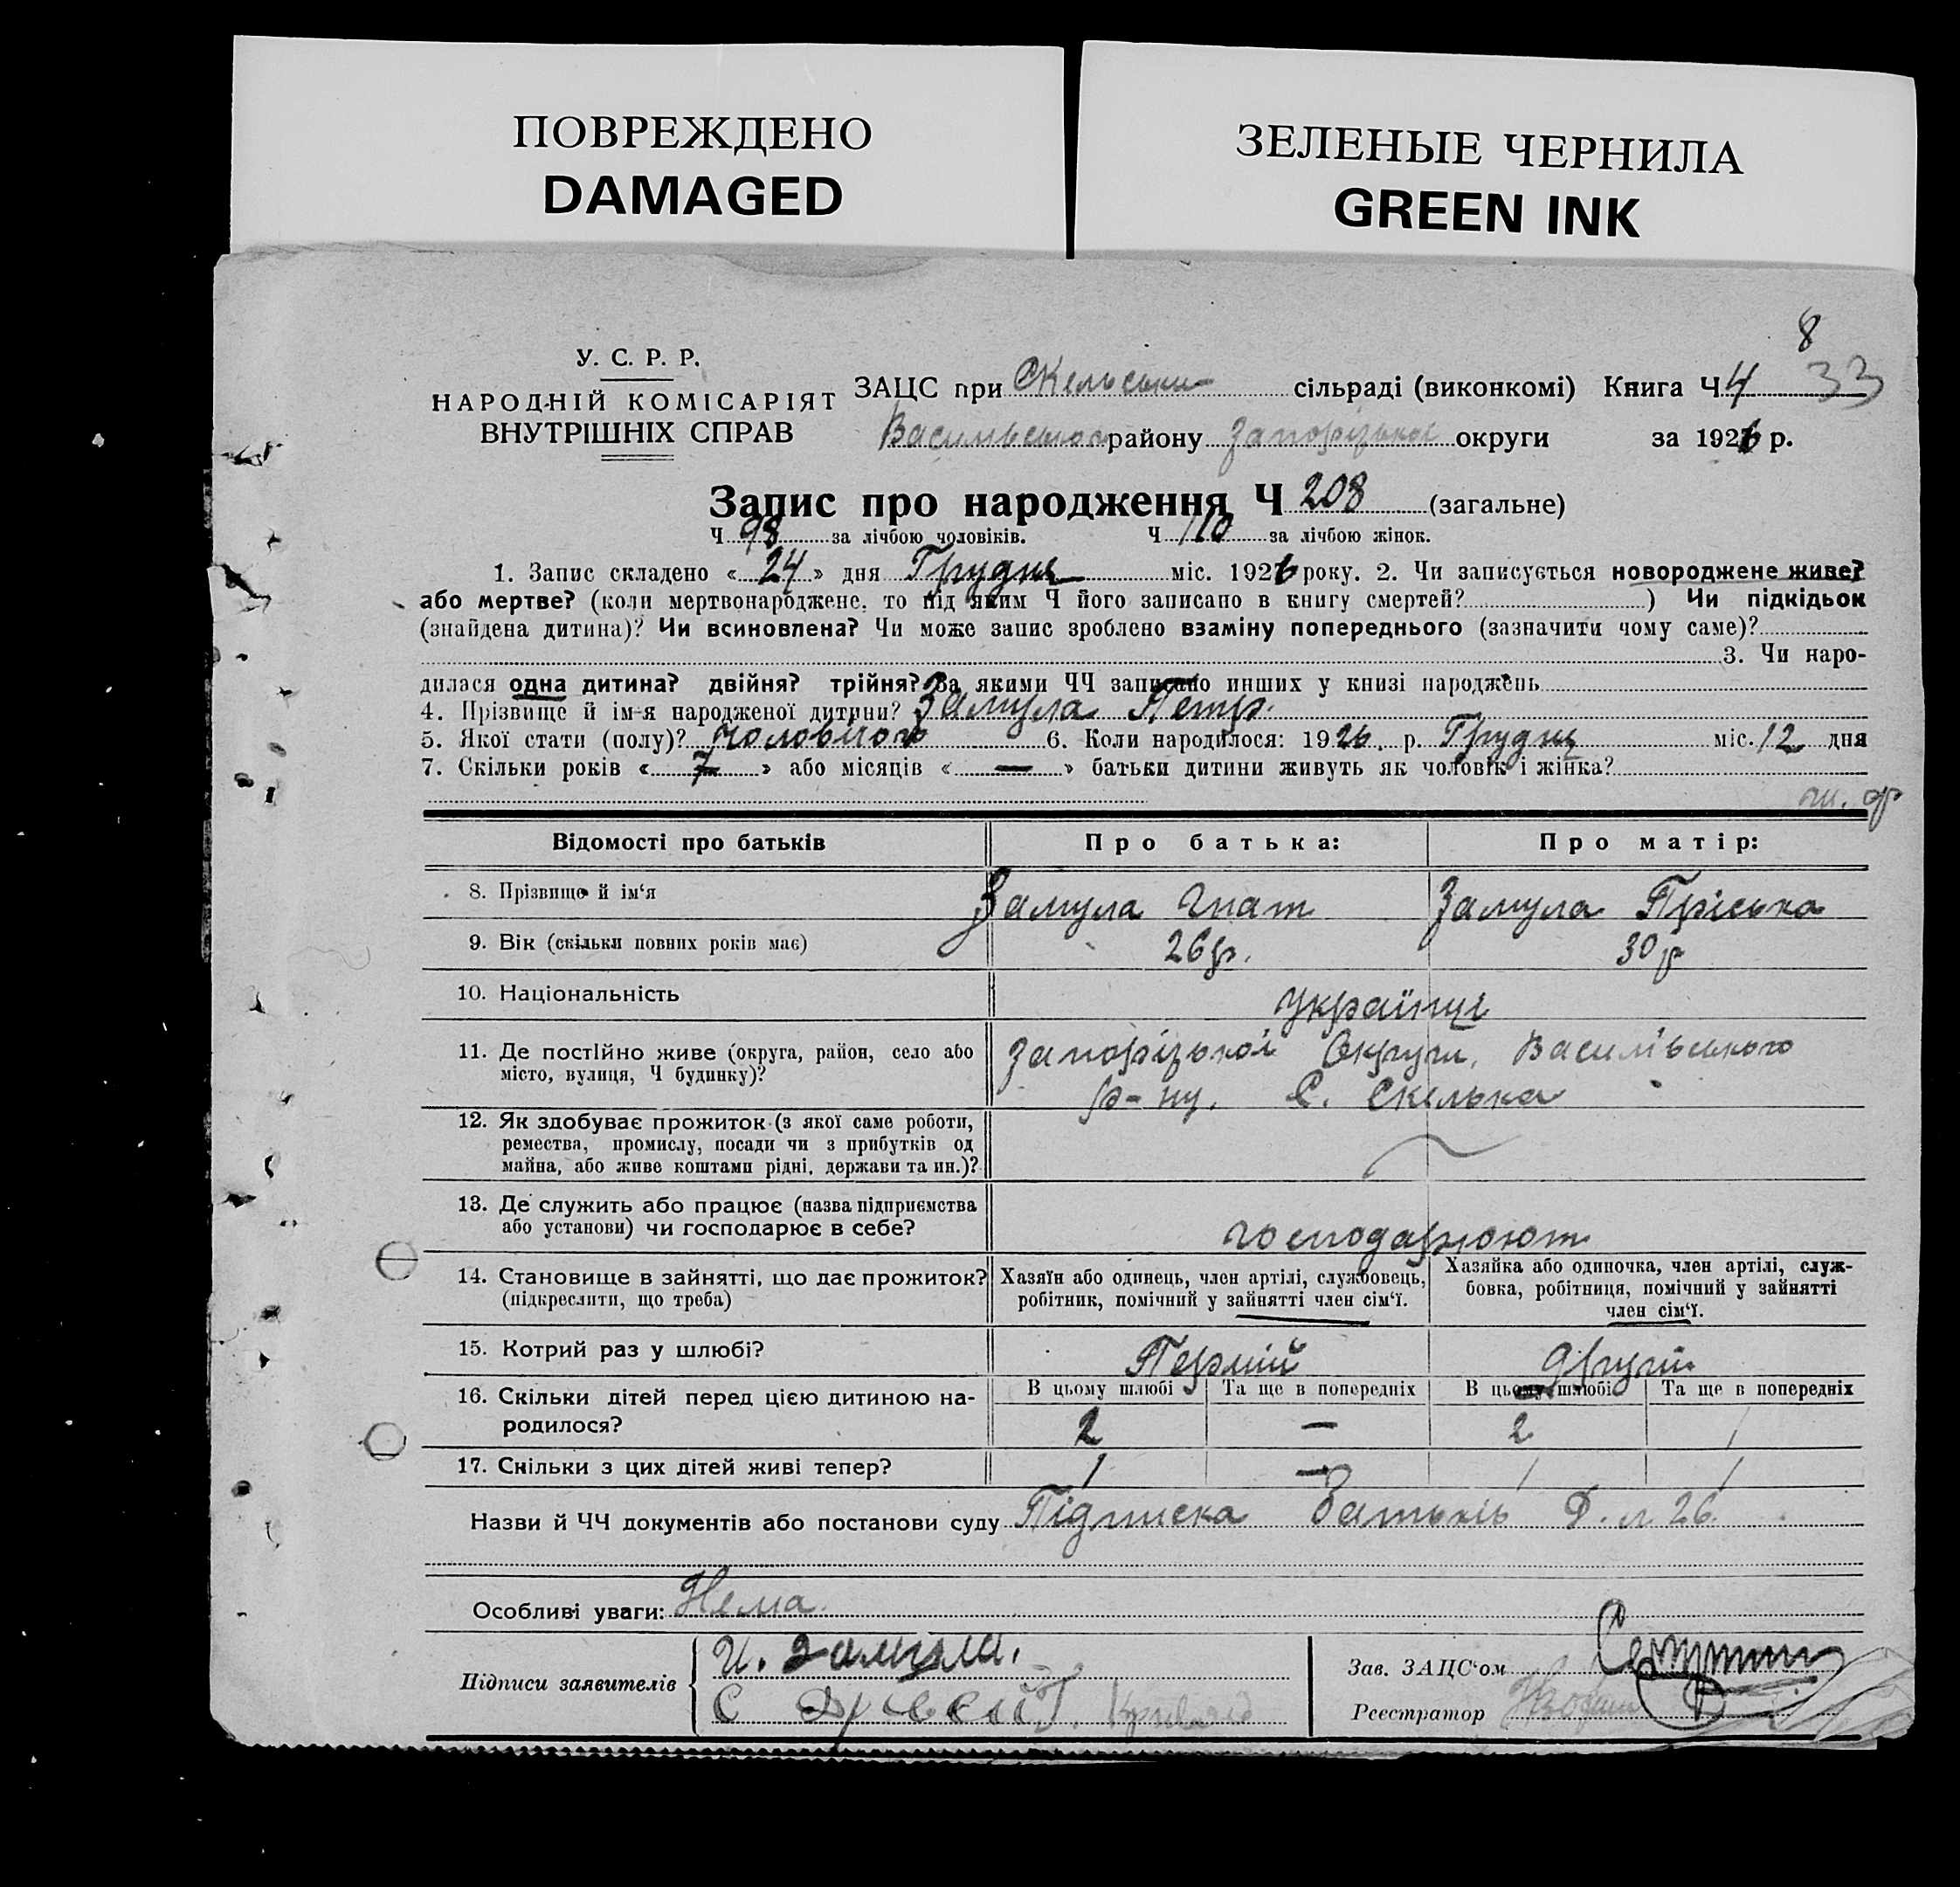 ПОВРЕЖДЕНО
DAMAGED
ЗЕЛЕНЫЕ ЧЕРНИЛА
GREEN INK
8
У. С. Р. Р.
НАРОДНІЙ КОМІСАРІЯТ
ВНУТРІШНІХ СПРАВ
ЗАЦС при Скельськи сільраді (виконкомі) Книга Ч 4 33
Васильвського району Запорізької округи за 1926 р.
Запис про народження Ч 208 (загальне)
Ч 98 за лічбою чоловіків. Ч 110 за лічбою жінок.
1. Запис складено « 24 » дня Грудня міс. 1926 року. 2. Чи записується новороджене живе?
або мертве? (коли мертвонароджене, то під яким Ч його записано в книгу смертей? ) Чи підкідьок
(знайдена дитина)? Чи всиновлена? Чи може запис зроблено взаміну попереднього (зазначити чому саме)?
3. Чи наро-
дилася одна дитина? двійня? трійня? За якими ЧЧ записано инших у книзі народжень
4. Прізвище й ім-я народженої дитини? Замула Петр.
5. Якої стати (полу)? чоловічого 6. Коли народилося: 1926. р. Грудня міс. 12 дня
7. Скільки років « 7 » або місяців « — » батьки дитини живуть як чоловік і жінка?
Відомості про батьків Про батька: Про матір:
8. Прізвище й ім‘я Замула Гнат Замула Пріська
9. Вік (скільки повних років має) 26 р. 30 р
10. Національність українці
11. Де постІйно живе (округа, район, село або Запорізької Округи, Василівського
місто, вулиця, Ч будинку)? р-ну. С. Скелька
12. Як здобуває прожиток (з якої саме роботи,
ремества, промислу, посади чи з прибутків од
майна, або живе коштами рідні, держави та ин.)?
13. Де служить або працює (назва підприємства
або установи) чи господарює в себе? господарюют
14. Становище в зайнятті, що дає прожиток? Хазяїн або одинець, член артілі, службовець, Хазяйка або одиночка, член артілі, служ-
(підкреслити, що треба) робітник, помічний у зайнятті член сім‘ї. бовка, робітниця, помічний у зайнятті
член сім‘ї.
15. Котрий раз у шлюбі? Перший другий
16. Скільки дітей перед цією дитиною на- В цьому шлюбі Та ще в попередніх В цьому шлюбі Та ще в попередніх
родилося? 2 — 2 1
17. Скільки з цих дітей живі тепер? 1 — 1 1
Назви й ЧЧ документів або постанови суду Підписка Батьків Д. л 26.
Особливі уваги: Нема.
Підписи заявителів И. Замула.
Зав. ЗАЦС‘ом
Реєстратор